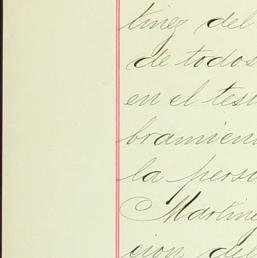 tinez del
de todos
en el tes
bramien
la pers
Martine
cion del